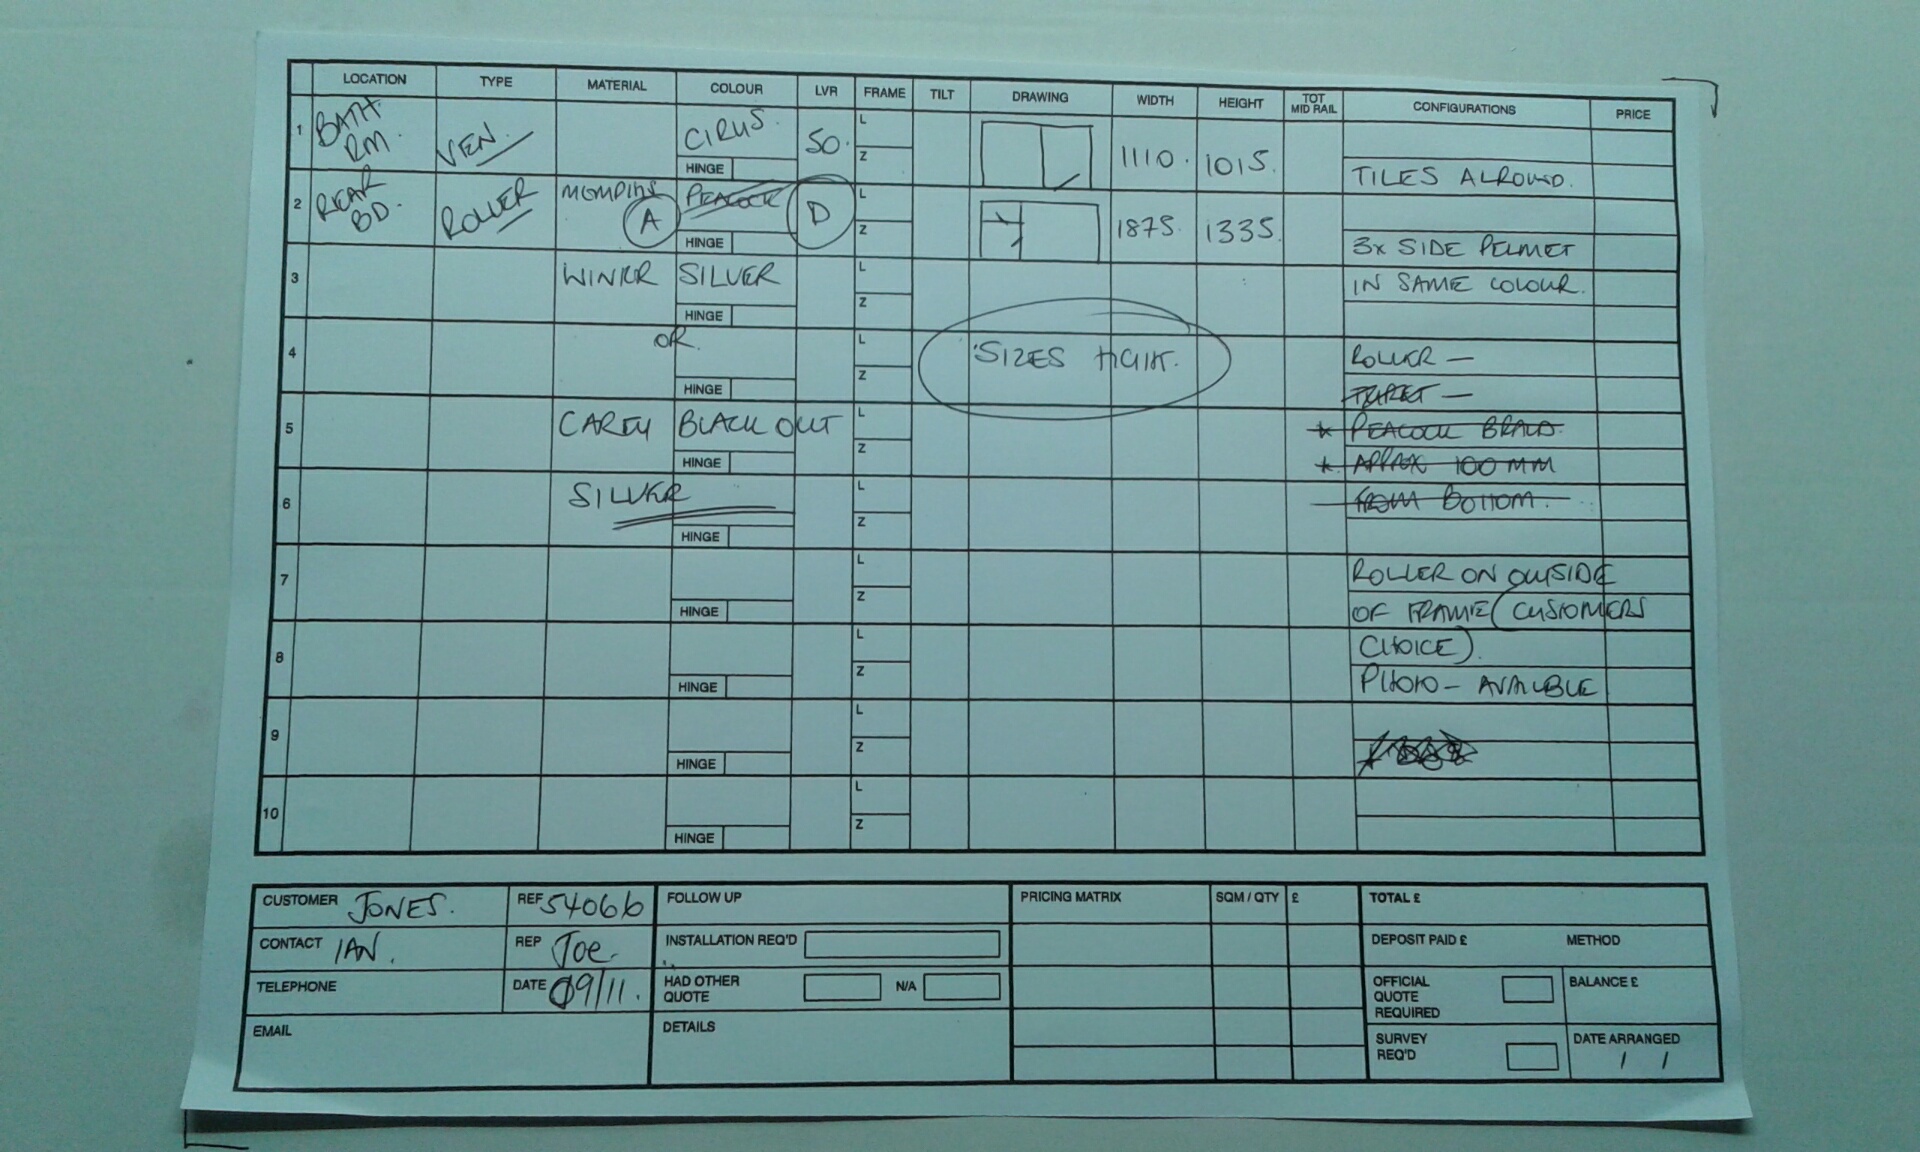 LOCATION TYPE MATERIAL COLOUR LVR FRAME TILT DRAWING WIDTH HEIGHT TOT MID RAIL CONFIGURATIONS PRICE
1 BATH RM. VEN. CIRUS. 50. L 1110. 1015.
HINGE Z TILES ALROUND.
2 REAR BD. ROLLER MEMPHIS A PEACOCK D L 1875. 1335.
HINGE Z 3x SIDE PELMET
3 SILVER L IN SAME COLOUR.
HINGE Z
4 OR. L SIZES ROLLER —
HINGE Z
5 BLACK OUT L * PEACOCK BRAID.
HINGE Z * APPROX 100 MM
6 SILVER L FROM BOTTOM.
HINGE Z
7 L ROLLER ON OUTSIDE
HINGE Z OF FRAME (CUSTOMERS
8 L CHOICE).
HINGE Z PHOTO - AVAILBLE
9 L
HINGE Z
10 L
HINGE Z
CUSTOMER JONES. REF 54066 FOLLOW UP PRICING MATRIX SQM / QTY £ TOTAL £
CONTACT IAN. REP Joe. INSTALLATION REQ'D DEPOSIT PAID £ METHOD
TELEPHONE DATE 09/11. HAD OTHER QUOTE N/A OFFICIAL QUOTE REQUIRED BALANCE £
EMAIL DETAILS SURVEY REQ'D DATE ARRANGED / /